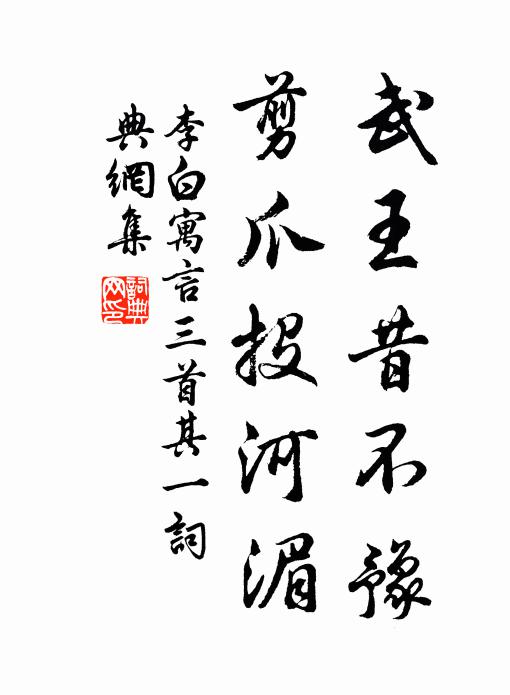 武王昔不豫
剪爪投河湄
李白寓言三首其一詞
典網集
詞典
网印